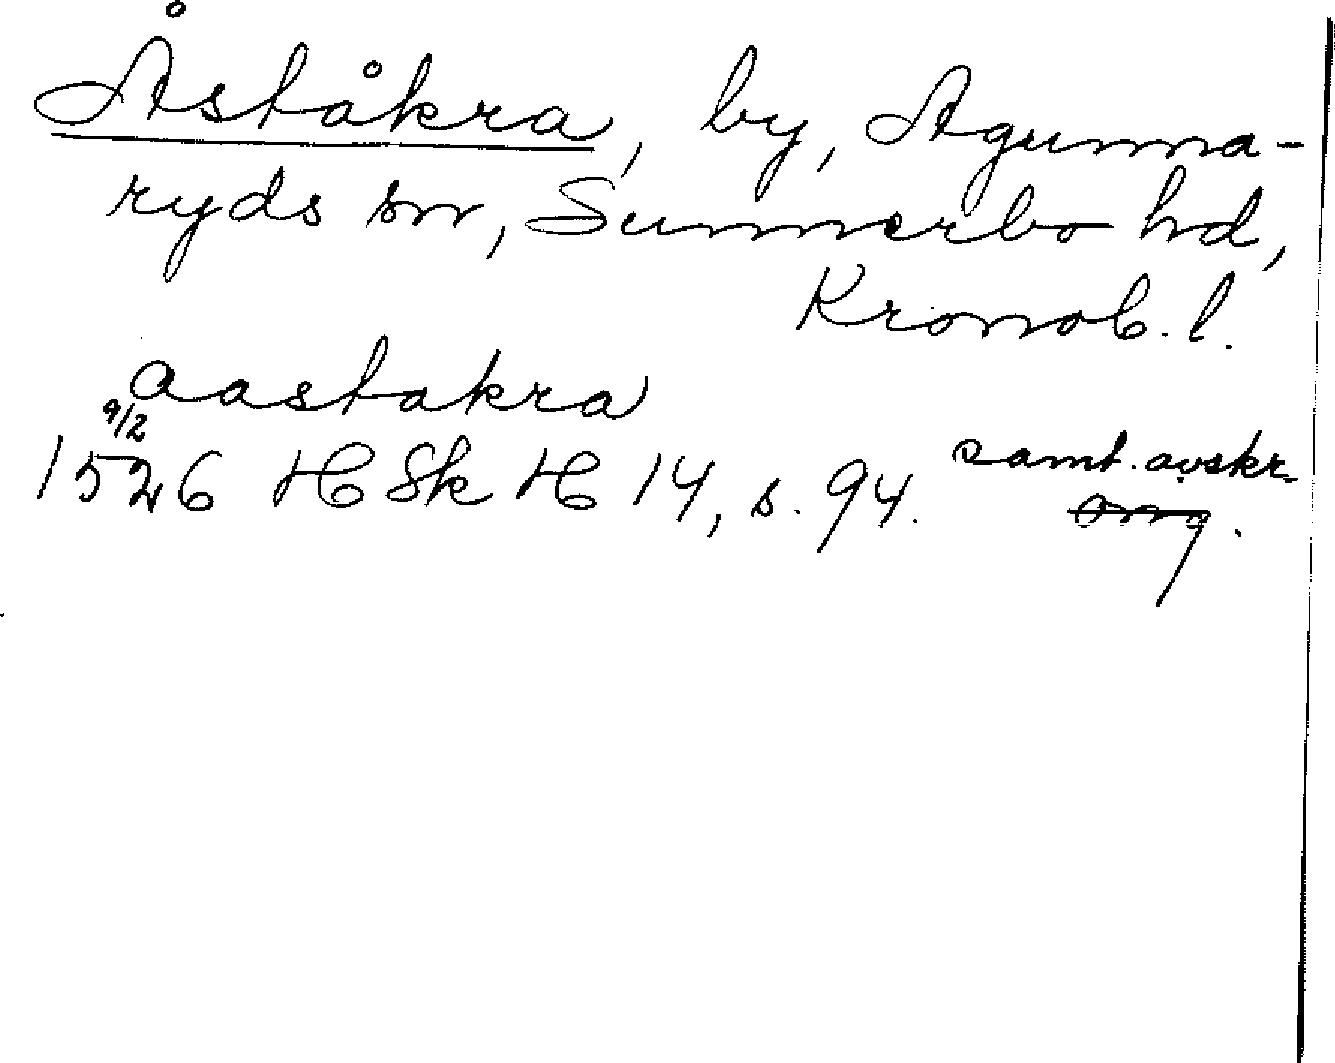 Åståkra, by, Agunna-
ryds sn, Sunnerbo hd,
Kronob. l.
Aastakra
1526 9/2 H Sk H 14, s. 94. samt. avskr.